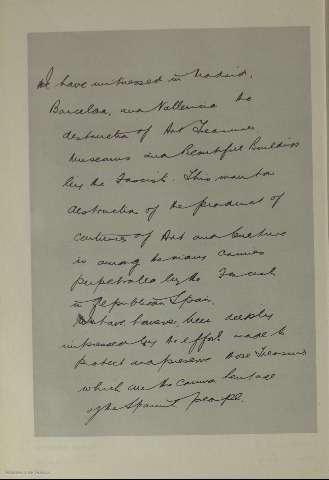 I have witnessed in Madrid,
Barcelona, and Valencia the
destruction of Art Treasures
Museums and Beautiful Buildings
by the Fascists. This wanton
destruction of the product of
centuries of Art and Culture
is among the many crimes
perpetrated by the Fascists
in Republican Spain.
have however been deeply
impressed by the efforts made to
protect and preserve those Treasures
which are the common heritage
of the Spanish people.